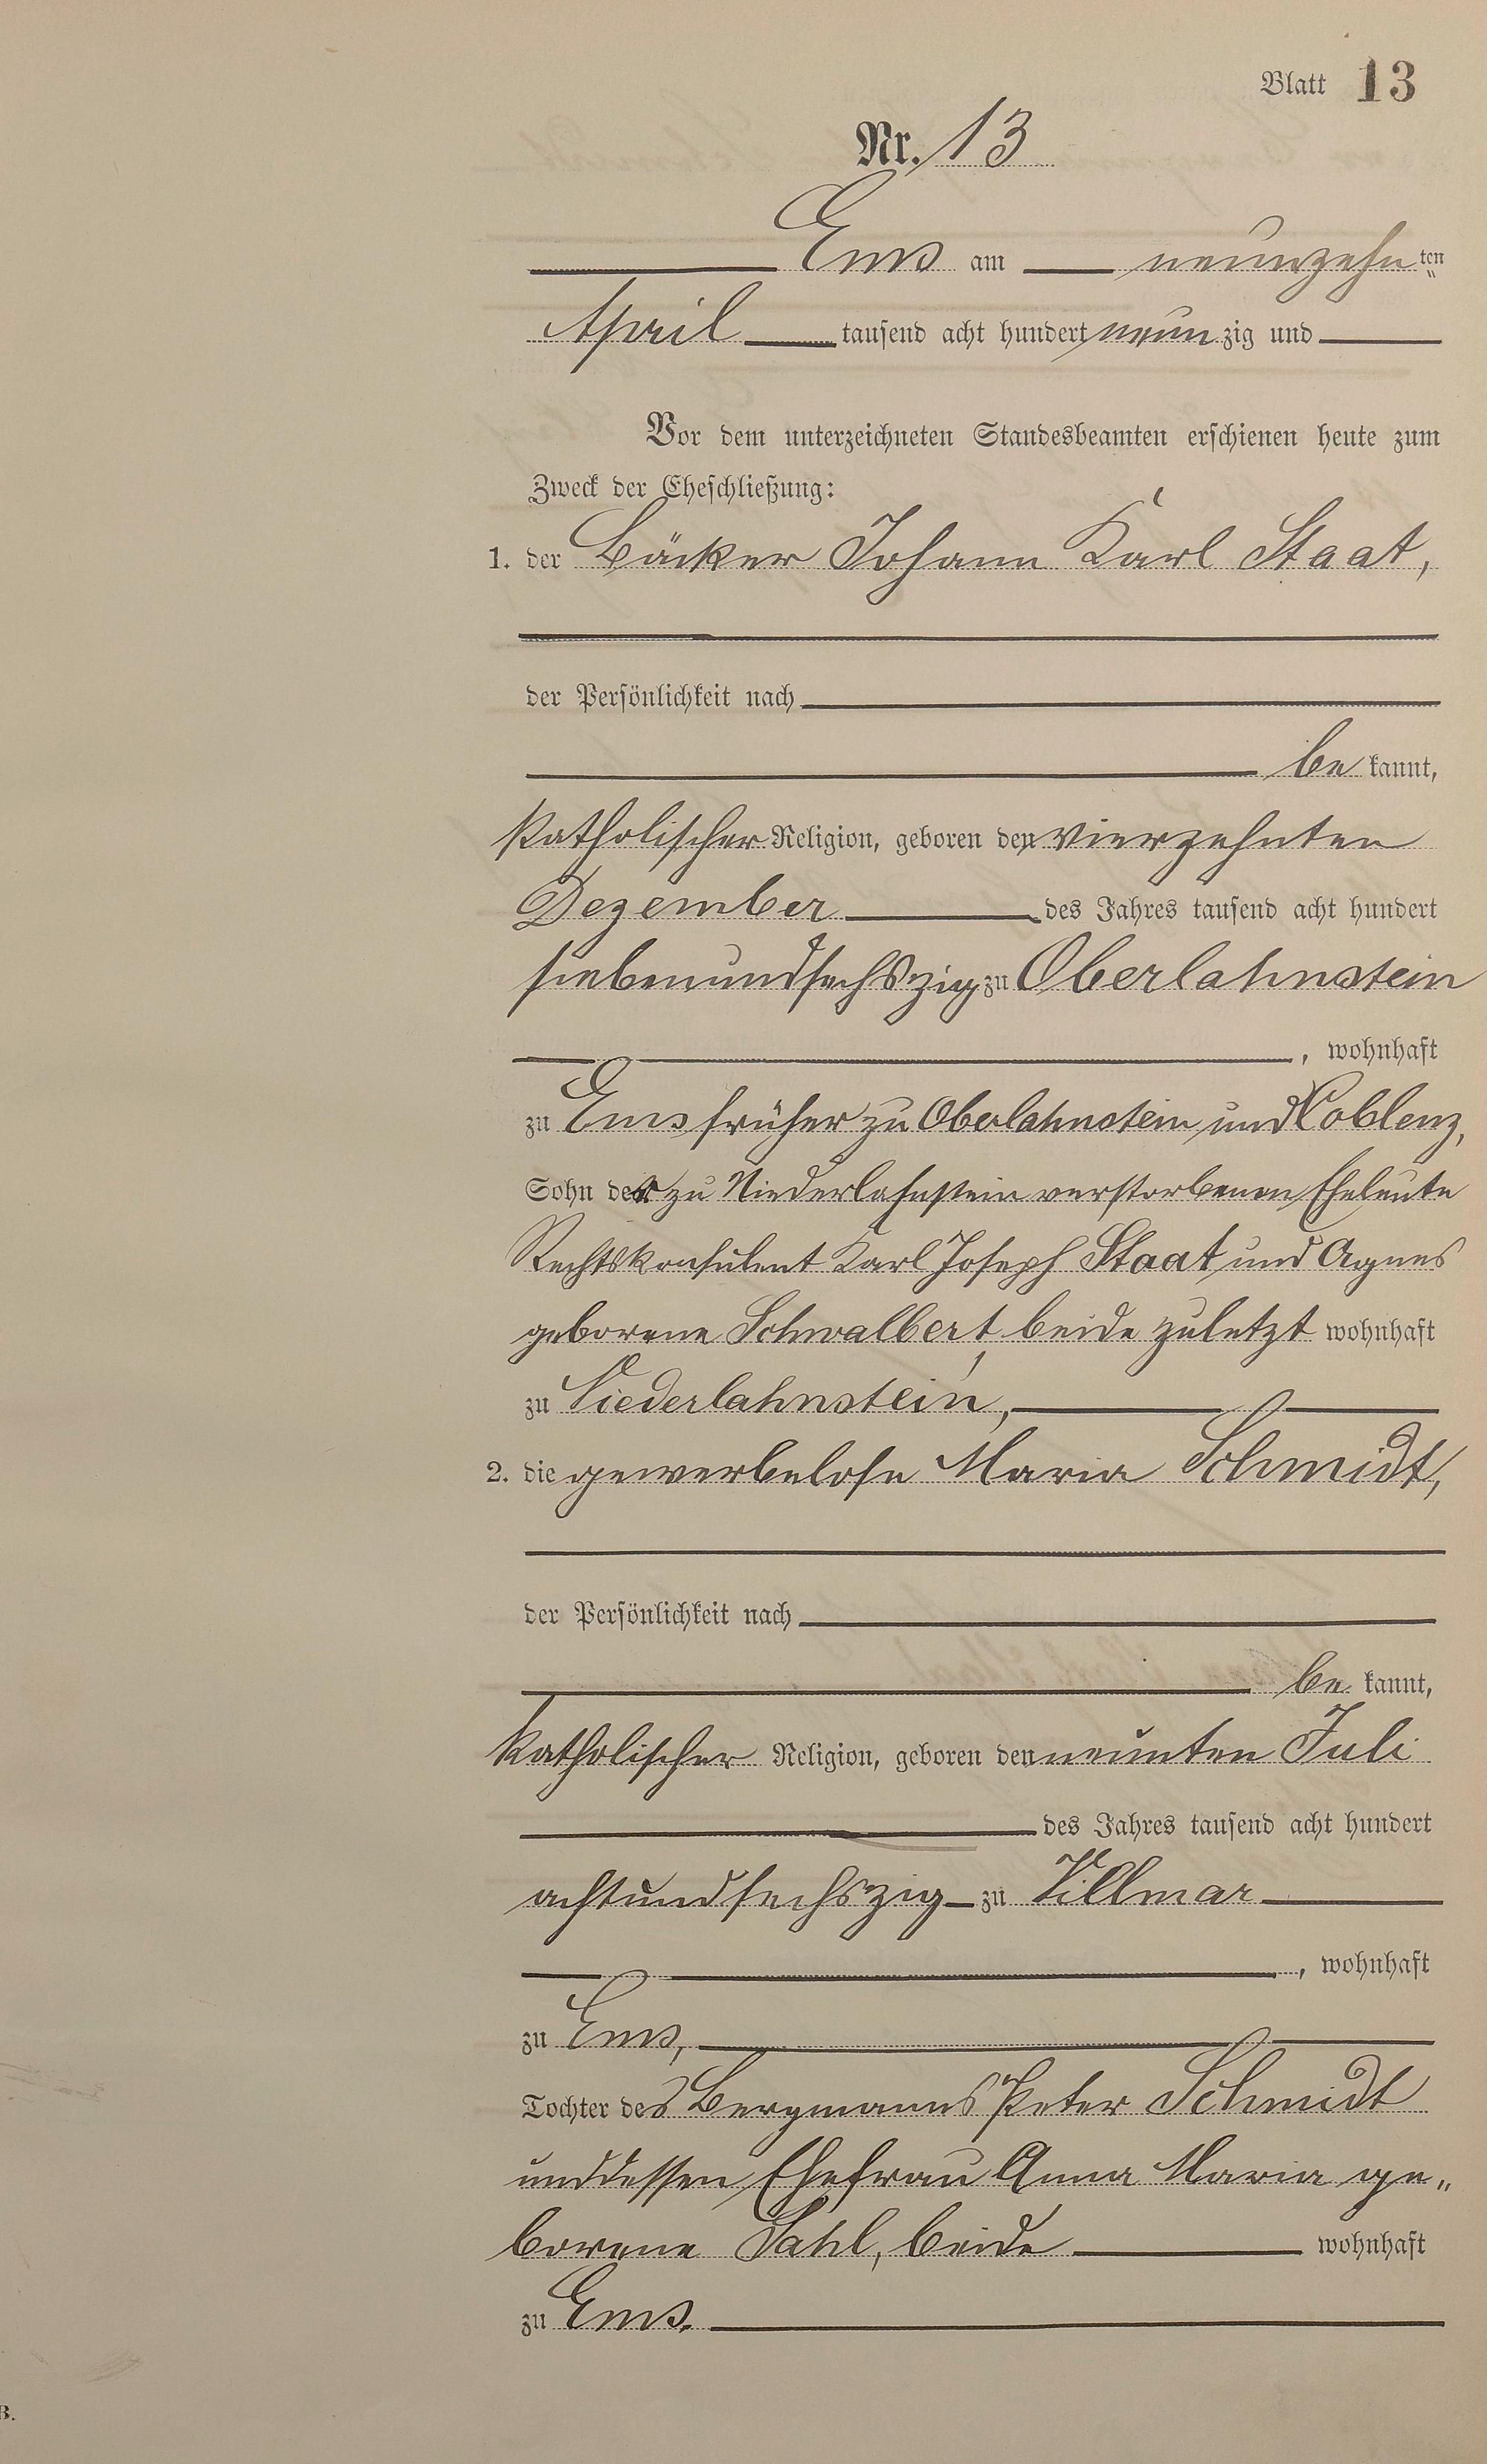 Blatt 13
Nr. 13
Ems am neunzehnten
April tausend acht hundert neunzig und
Vor dem unterzeichneten Standesbeamten erschienen heute zum
Zweck der Eheschließung:
1. der Bäcker Johann Karl Staat,
der Persönlichkeit nach
bekannt,
katholischer Religion, geboren den vierzehnten
Dezember des Jahres tausend acht hundert
siebenundsechszig zu Oberlahnstein
, wohnhaft
zu Ems früher zu Oberlahnstein und Coblenz,
Sohn der zu Niederlahnstein verstorbenen Eheleute
Rechtskonsulent Karl Joseph Staat und Agnes
geborene Schwalbert, beide zuletzt wohnhaft
zu Niederlahnstein,
2. die gewerbelose Maria Schmidt,
der Persönlichkeit nach
bekannt,
katholischer Religion, geboren den neunten Juli
des Jahres tausend acht hundert
achtundsechszig zu Villmar
, wohnhaft
zu Ems,
Tochter des Bergmanns Peter Schmidt
und dessen Ehefrau Anna Maria ge„
borene Sahl, beide wohnhaft
zu Ems.
B.